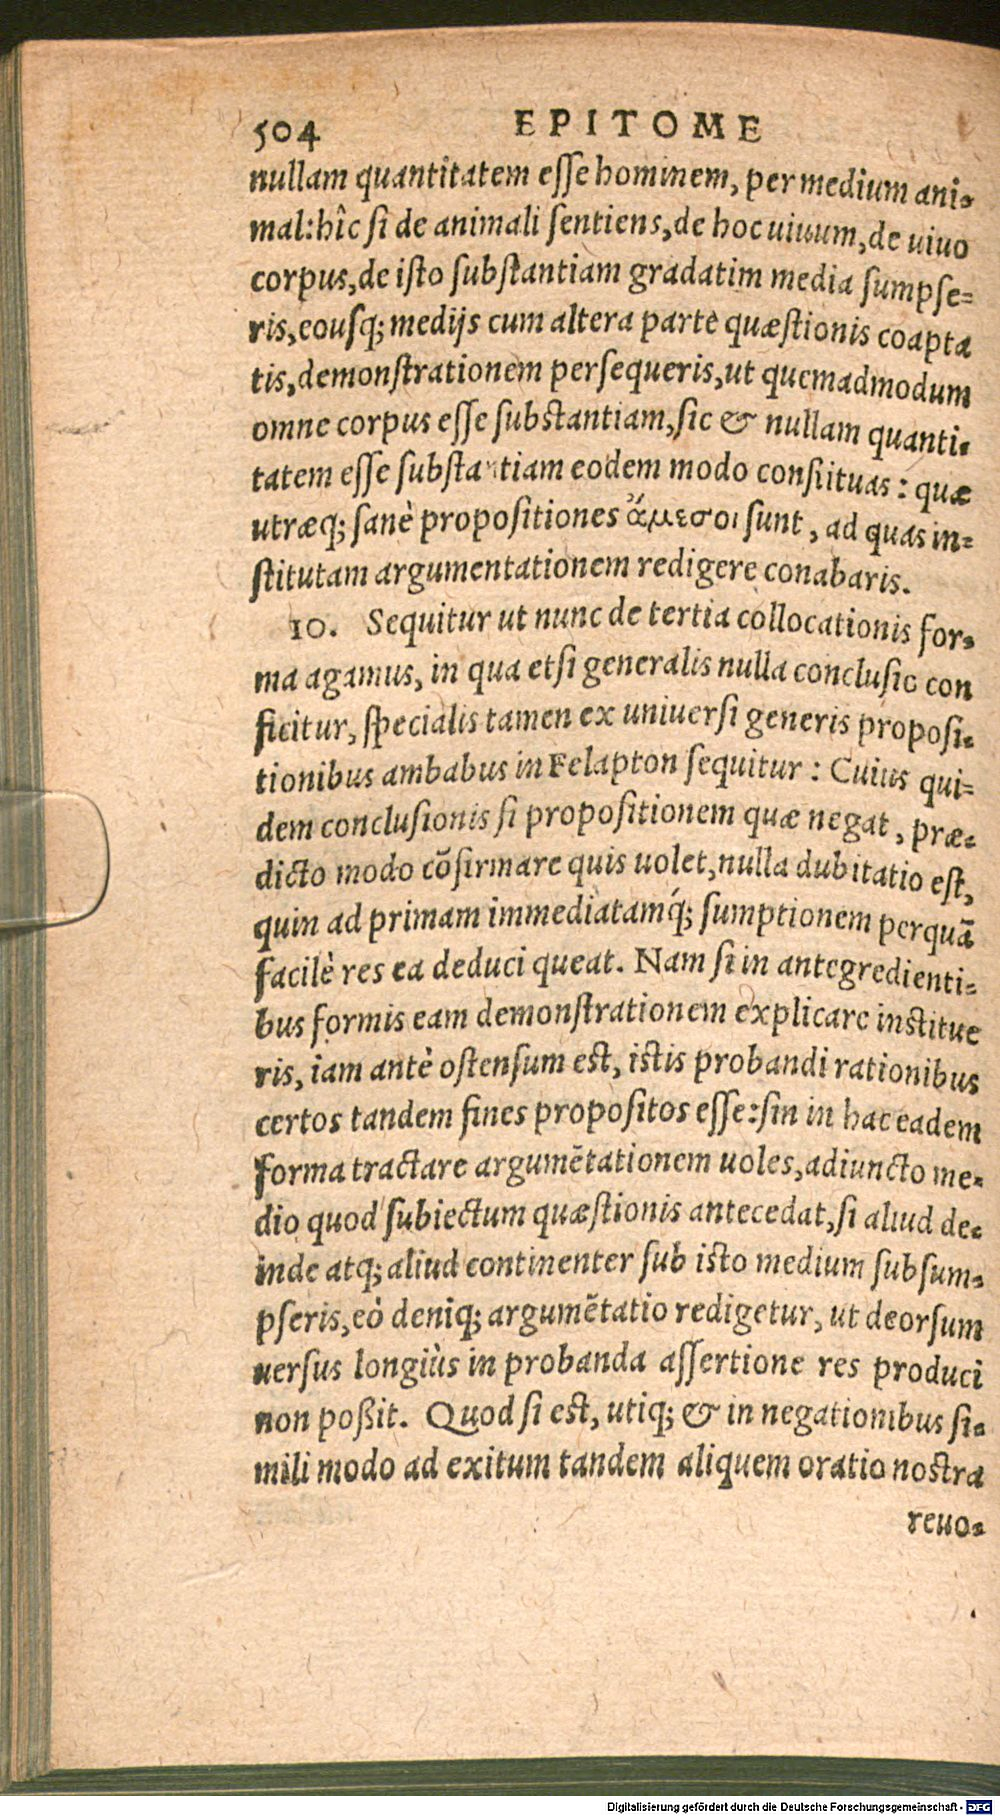 504 EPITOME
nullam quantitatem esse hominem, per medium ani-
mal: hîc si de animali sentiens, de hoc uiuum, de uiuo
corpus, de isto substantiam gradatim media sumpse-
ris, eousq; medijs cum altera parte quæstionis coapta
tis, demonstrationem persequeris, ut quemadmodum
omne corpus esse substantiam, sic & nullam quanti-
tatem esse substantiam eodem modo constituas: quæ
utræq; sanè propositiones ἄμεσοι sunt, ad quas in-
stitutam argumentationem redigere conabaris.
10. Sequitur ut nunc de tertia collocationis for-
ma agamus, in qua etsi generalis nulla conclusio con
ficitur, specialis tamen ex uniuersi generis proposi-
tionibus ambabus in Felapton sequitur: Cuius qui-
dem conclusionis si propositionem quæ negat, præ-
dicto modo cõfirmare quis uolet, nulla dubitatio est,
quin ad primam immediatamq́; sumptionem perquã
facilè res ea deduci queat. Nam si in antegredienti-
bus formis eam demonstrationem explicare institue
ris, iam antè ostensum est, istis probandi rationibus
certos tandem fines propositos esse: sin in hac eadem
forma tractare argumẽtationem uoles, adiuncto me-
dio quod subiectum quæstionis antecedat, si aliud de-
inde atq; aliud continenter sub isto medium subsum-
pseris, eò deniq; argumẽtatio redigetur, ut deorsum
uersus longiùs in probanda assertione res produci
non poßit. Quod si est, utiq; & in negationibus si-
mili modo ad exitum tandem aliquem oratio nostra
reuo-
Digitalisierung gefördert durch die Deutsche Forschungsgemeinschaft - DFG